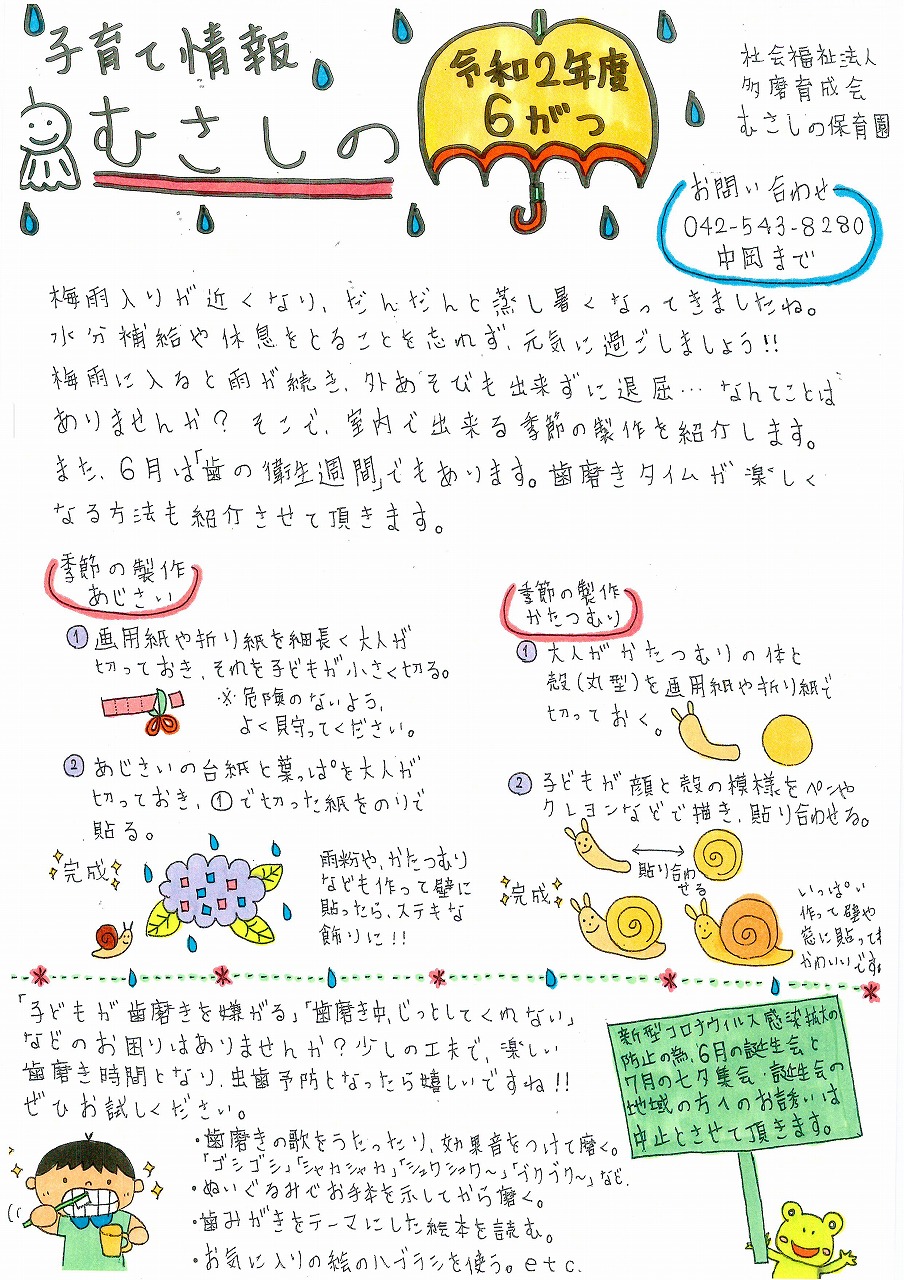 子育て情報
むさしの
令和2年度
6がつ
社会福祉法人
多磨育成会
むさしの保育園
お問い合わせ
042-543-8280
中岡まで
梅雨入りが近くなり、だんだんと蒸し暑くなってきましたね。
水分補給や休息をとることを忘れず、元気に過ごしましょう!!
梅雨に入ると雨が続き、外あそびも出来ずに退屈…なんてことは
ありませんか?そこで、室内で出来る季節の製作を紹介します。
また、6月は「歯の衛生週間」でもあります。歯磨きタイムが楽しく
なる方法も紹介させて頂きます。
季節の製作
あじさい
① 画用紙や折り紙を細長く大人が
切っておき、それを子どもが小さく切る。
※危険のないよう、
よく見守ってください。
② あじさいの台紙と葉っぱを大人が
切っておき、①で切った紙をのりで
貼る。
完成
雨粒や、かたつむり
なども作って壁に
貼ったら、ステキな
飾りに!!
季節の製作
かたつむり
① 大人がかたつむりの体と
殻(丸型)を画用紙や折り紙で
切っておく。
② 子どもが顔と殻の模様をペンや
クレヨンなどで描き、貼り合わせる。
貼り合わ
せる
完成
いっぱい
作って壁や
窓に貼っても
かわいいです。
「子どもが歯磨きを嫌がる」「歯磨き中、じっとしてくれない」
などのお困りはありませんか?少しの工夫で、楽しい
歯磨き時間となり、虫歯予防となったら嬉しいですね!!
ぜひお試しください。
・歯磨きの歌をうたったり、効果音をつけて磨く。
「ゴシゴシ」「シャカシャカ」「シュワシュワ〜」「ブクブク〜」など.
・ぬいぐるみでお手本を示してから磨く。
・歯みがきをテーマにした絵本を読む。
・お気に入りの絵のハブラシを使う。etc.
新型コロナウィルス感染拡大の
防止の為、6月の誕生会と
7月の七夕集会・誕生会の
地域の方へのお誘いは
中止とさせて頂きます。